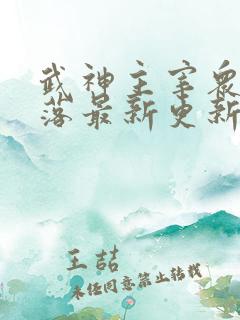 武神主宰众
落最新更新
王喆
未经同意禁止转载